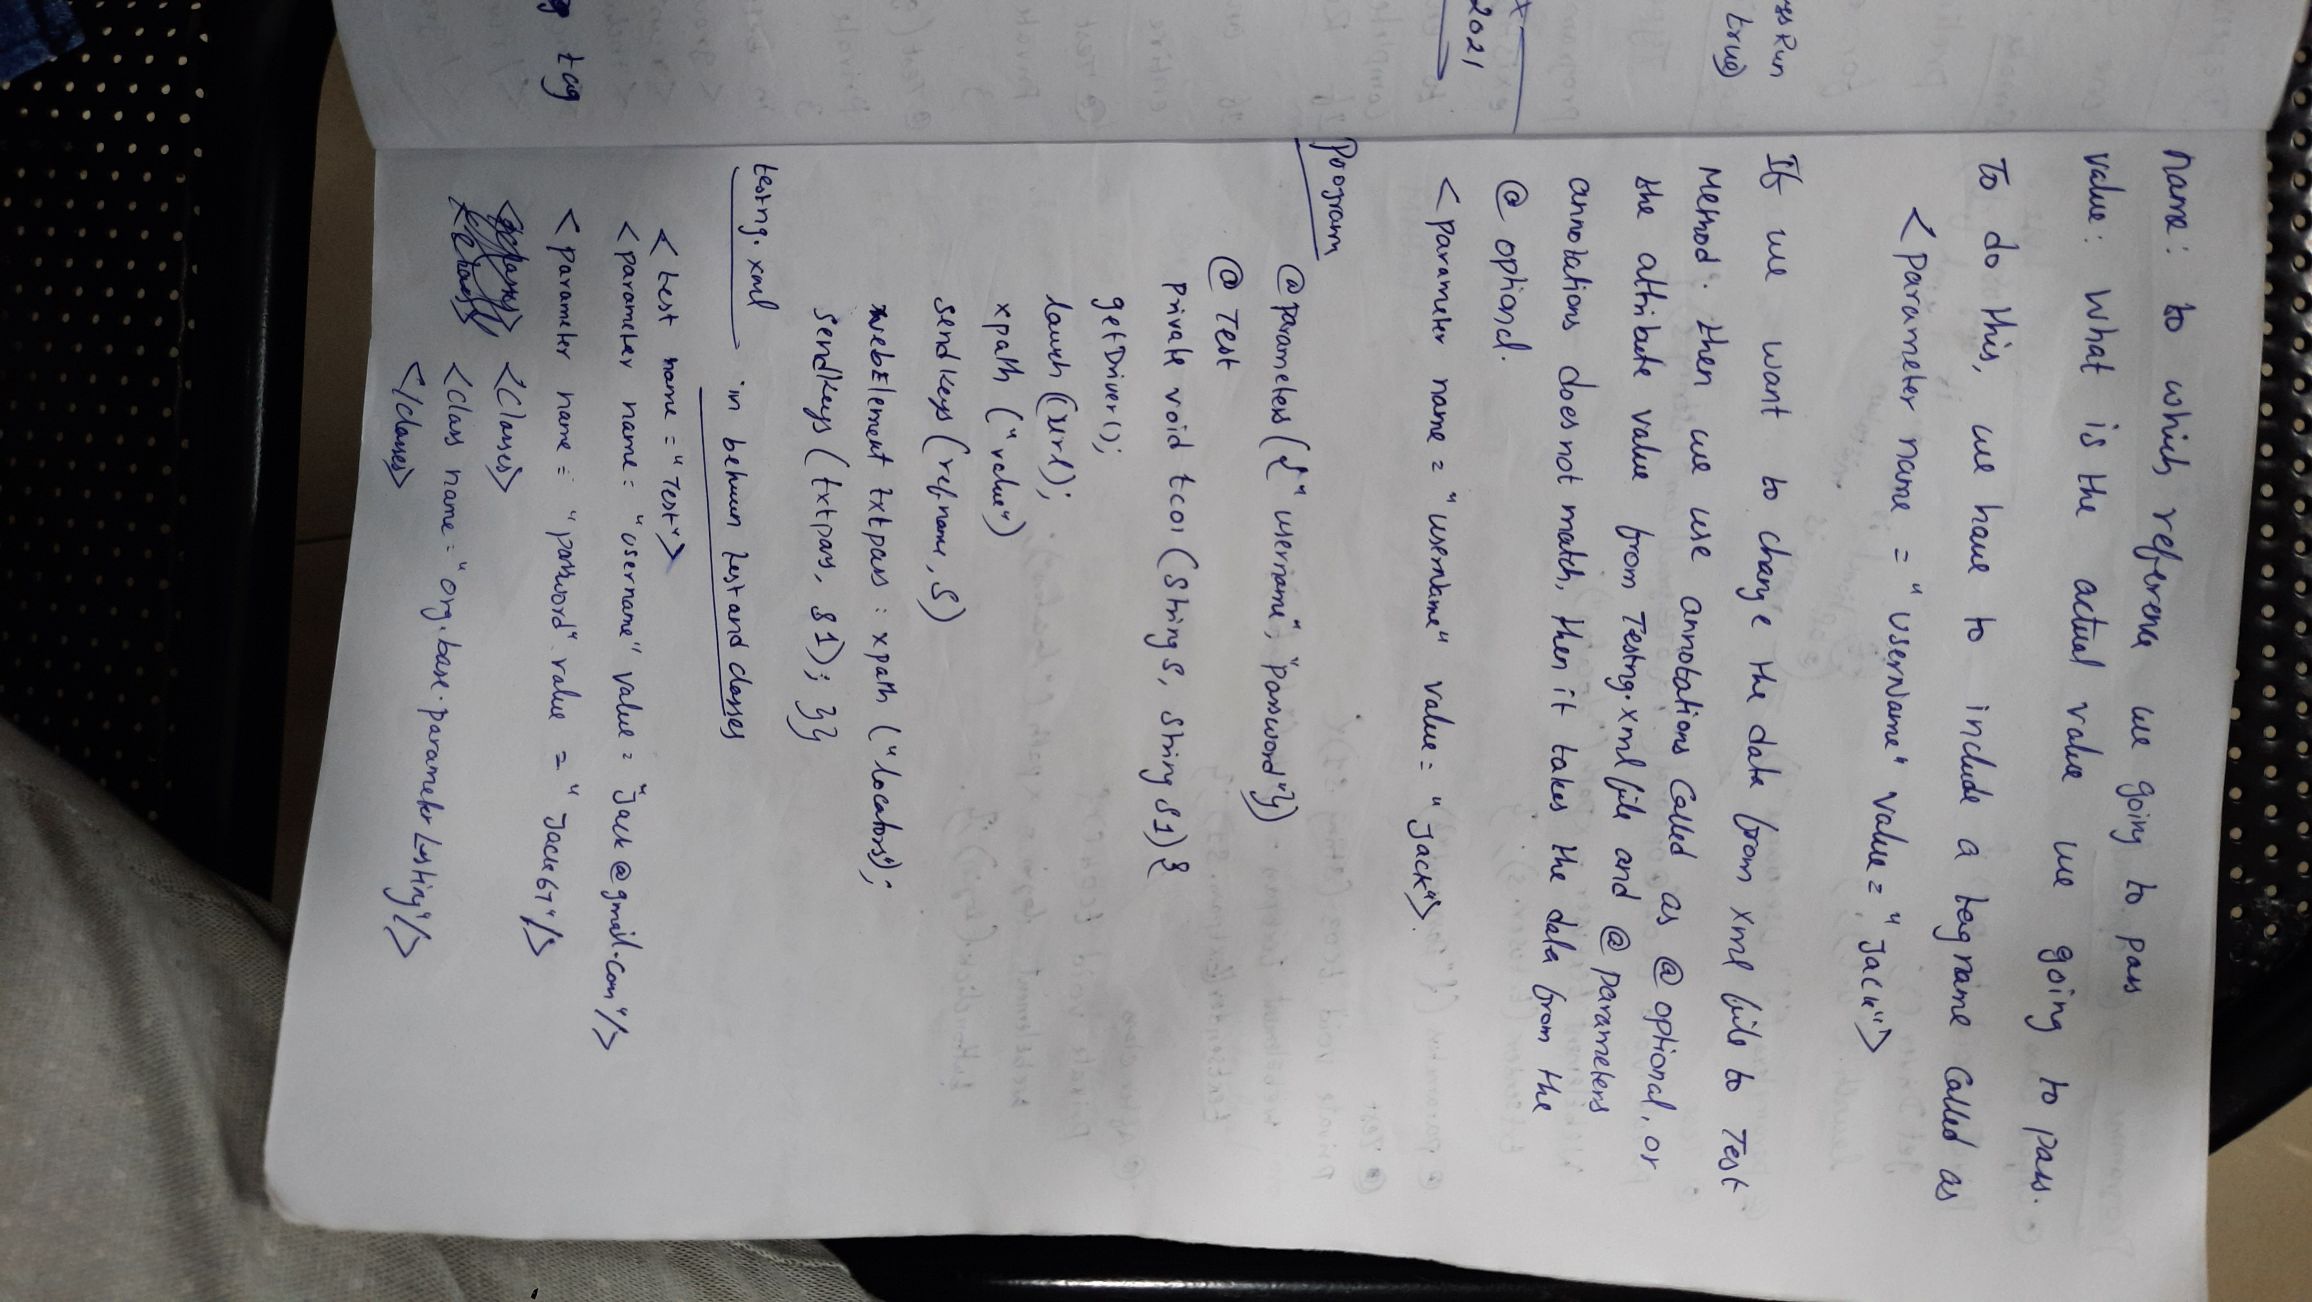 name: to which reference we going to pass
value: what is the actual value we going to pass.
To do this, we have to include a tagname called as
<parameter name = "username" value = "Jack">
If we want to change the data from xml file to Test
Method. then we use annotations called as @ optional, or
the attribute value from Testng.xml file and @ parameters
annotations does not match, then it takes the data from the
@ optional.
<parameter name = "username" value = "Jack">.
Program
@parameters ({"username", "password"})
@ Test
private void tc01 (String S, String S1) {
getDriver();
launch (url);
xpath ("value")
sendkeys (ref name, S)
webElement txtpass : xpath ("locators");
sendkeys (txtpass, S1); }}
testng.xml in between test and classes
<test name = "Test">
<parameter name = "username" value = "Jack@gmail.com"/>
<parameter name = "password" value = "Jack67"/>
<classes>
<class name = "org.base.parameter testing"/>
</classes>
ss Run
true)
x
2021
tag